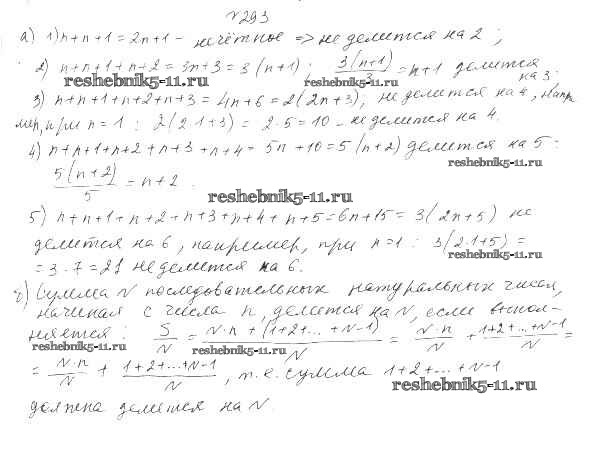 №293
а) 1) n+n+1 = 2n+1 - нечётное => не делится на 2;
2) n+n+1+n+2 = 3n+3 = 3(n+1); 3(n+1)/3 = n+1 делится на 3.
reshebnik5-11.ru
3) n+n+1+n+2+n+3 = 4n+6 = 2(2n+3), не делится на 4, напри
мер, при n=1: 2(2·1+3) = 2·5 = 10 - не делится на 4.
4) n+n+1+n+2+n+3+n+4 = 5n+10 = 5(n+2) делится на 5:
reshebnik5-11.ru
5(n+2)/5 = n+2.
reshebnik5-11.ru
5) n+n+1+n+2+n+3+n+4+n+5 = 6n+15 = 3(2n+5) не
делится на 6, например, при n=1: 3(2·1+5) =
reshebnik5-11.ru
= 3·7 = 21 не делится на 6.
б) Сумма N последовательных натуральных чисел,
начиная с числа n, делится на N, если выпол-
няется: S/N = (N·n+(1+2+...+N-1))/N = N·n/N + (1+2+...+N-1)/N =
reshebnik5-11.ru reshebnik5-11.ru
= N·n/N + (1+2+...+N-1)/N, т.е. сумма 1+2+...+N-1
reshebnik5-11.ru
должна делится на N.